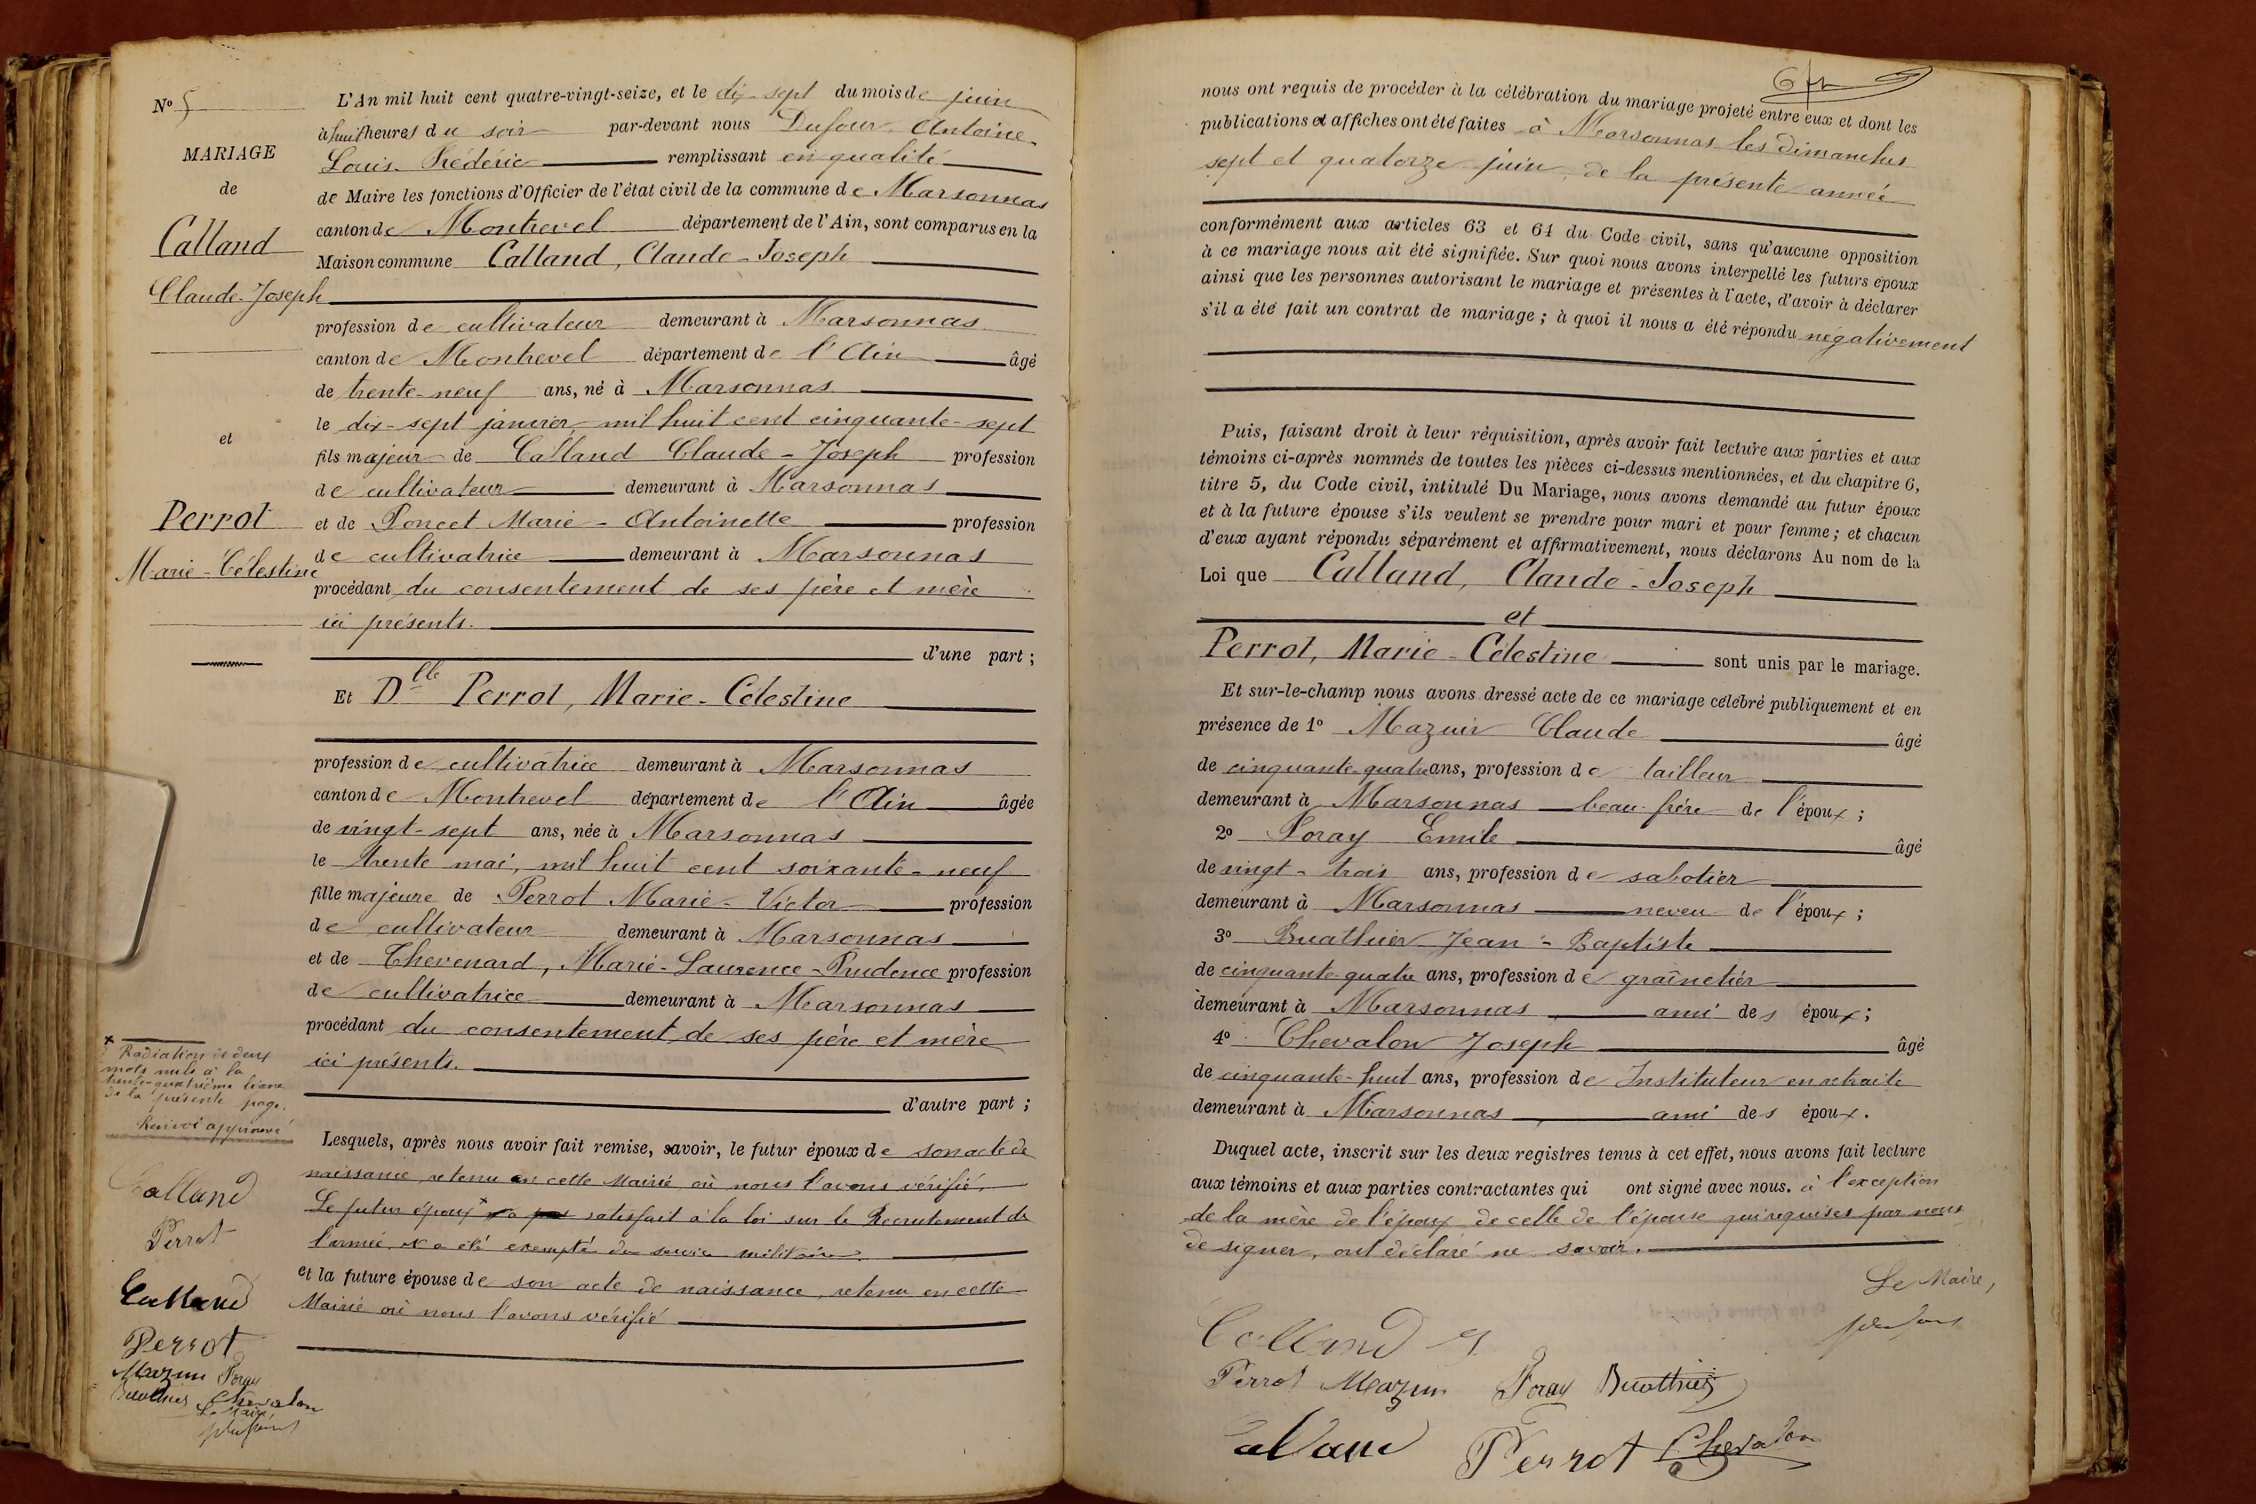 N° 5
MARIAGE
de
Calland
Claude-Joseph
et
Perrot
Marie-Célestine
L'An mil huit cent quatre-vingt-seize, et le dix-sept du mois de juin
à huit heures du soir par-devant nous Dufour Antoine
Louis Frédéric remplissant en qualité
de Maire les fonctions d'Officier de l'état civil de la commune de Marsonnas
canton de Montrevel département de l'Ain, sont comparus en la
Maison commune Calland, Claude-Joseph
profession de cultivateur demeurant à Marsonnas
canton de Montrevel département de l'Ain âgé
de trente-neuf ans, né à Marsonnas
le dix-sept janvier, mil huit cent cinquante-sept
fils majeur de Calland Claude-Joseph profession
de cultivateur demeurant à Marsonnas
et de Poncet Marie-Antoinette profession
de cultivatrice demeurant à Marsonnas
procédant du consentement de ses père et mère
ici présents.
d'une part ;
Et Dlle Perrot, Marie-Célestine
profession de cultivatrice demeurant à Marsonnas
canton de Montrevel département de l'Ain âgée
de vingt-sept ans, née à Marsonnas
le trente mai, mil huit cent soixante-neuf
fille majeure de Perrot Marie-Victor profession
de cultivateur demeurant à Marsonnas
et de Chevenard, Marie-Laurence-Prudence profession
de cultivatrice demeurant à Marsonnas
procédant du consentement de ses père et mère
ici présents.
d'autre part ;
Lesquels, après nous avoir fait remise, savoir, le futur époux de son acte de
naissance, retenu en cette Mairie où nous l'avons vérifié.
Le futur époux x a pas satisfait à la loi sur le Recrutement de
l'armée, et a été exempté du service militaire.
et la future épouse de son acte de naissance, retenu en cette
Mairie où nous l'avons vérifié
x Radiation de deux
mots nuls à la
trente-quatrième ligne
de la présente page.
Renvoi approuvé
Calland
Perrot
Calland
Perrot
Mazuir Poray
Buathier Chevalon
Le Maire,
nous ont requis de procéder à la célébration du mariage projeté entre eux et dont les
publications et affiches ont été faites à Marsonnas les dimanches
sept et quatorze juin, de la présente année
conformément aux articles 63 et 64 du Code civil, sans qu'aucune opposition
à ce mariage nous ait été signifiée. Sur quoi nous avons interpellé les futurs époux
ainsi que les personnes autorisant le mariage et présentes à l'acte, d'avoir à déclarer
s'il a été fait un contrat de mariage ; à quoi il nous a été répondu négativement
Puis, faisant droit à leur réquisition, après avoir fait lecture aux parties et aux
témoins ci-après nommés de toutes les pièces ci-dessus mentionnées, et du chapitre 6,
titre 5, du Code civil, intitulé Du Mariage, nous avons demandé au futur époux
et à la future épouse s'ils veulent se prendre pour mari et pour femme ; et chacun
d'eux ayant répondu séparément et affirmativement, nous déclarons Au nom de la
Loi que Calland, Claude-Joseph
et
Perrot, Marie-Célestine sont unis par le mariage.
Et sur-le-champ nous avons dressé acte de ce mariage célébré publiquement et en
présence de 1° Mazuir Claude âgé
de cinquante-quatre ans, profession de tailleur
demeurant à Marsonnas beau-frère de l'époux ;
2° Poray Emile âgé
de vingt-trois ans, profession de sabotier
demeurant à Marsonnas neveu de l'époux ;
3° Buathier Jean-Baptiste
de cinquante-quatre ans, profession de graînetier
demeurant à Marsonnas ami des époux ;
4° Chevalon Joseph âgé
de cinquante-huit ans, profession de Instituteur en retraite
demeurant à Marsonnas ami des époux.
Duquel acte, inscrit sur les deux registres tenus à cet effet, nous avons fait lecture
aux témoins et aux parties contractantes qui ont signé avec nous. à l'exception
de la mère de l'époux de celle de l'épouse qui requises par nous
de signer, ont déclaré ne savoir.
Le Maire,
Calland J
Perrot Mazuir Poray Buathier
Calland Perrot Chevalon